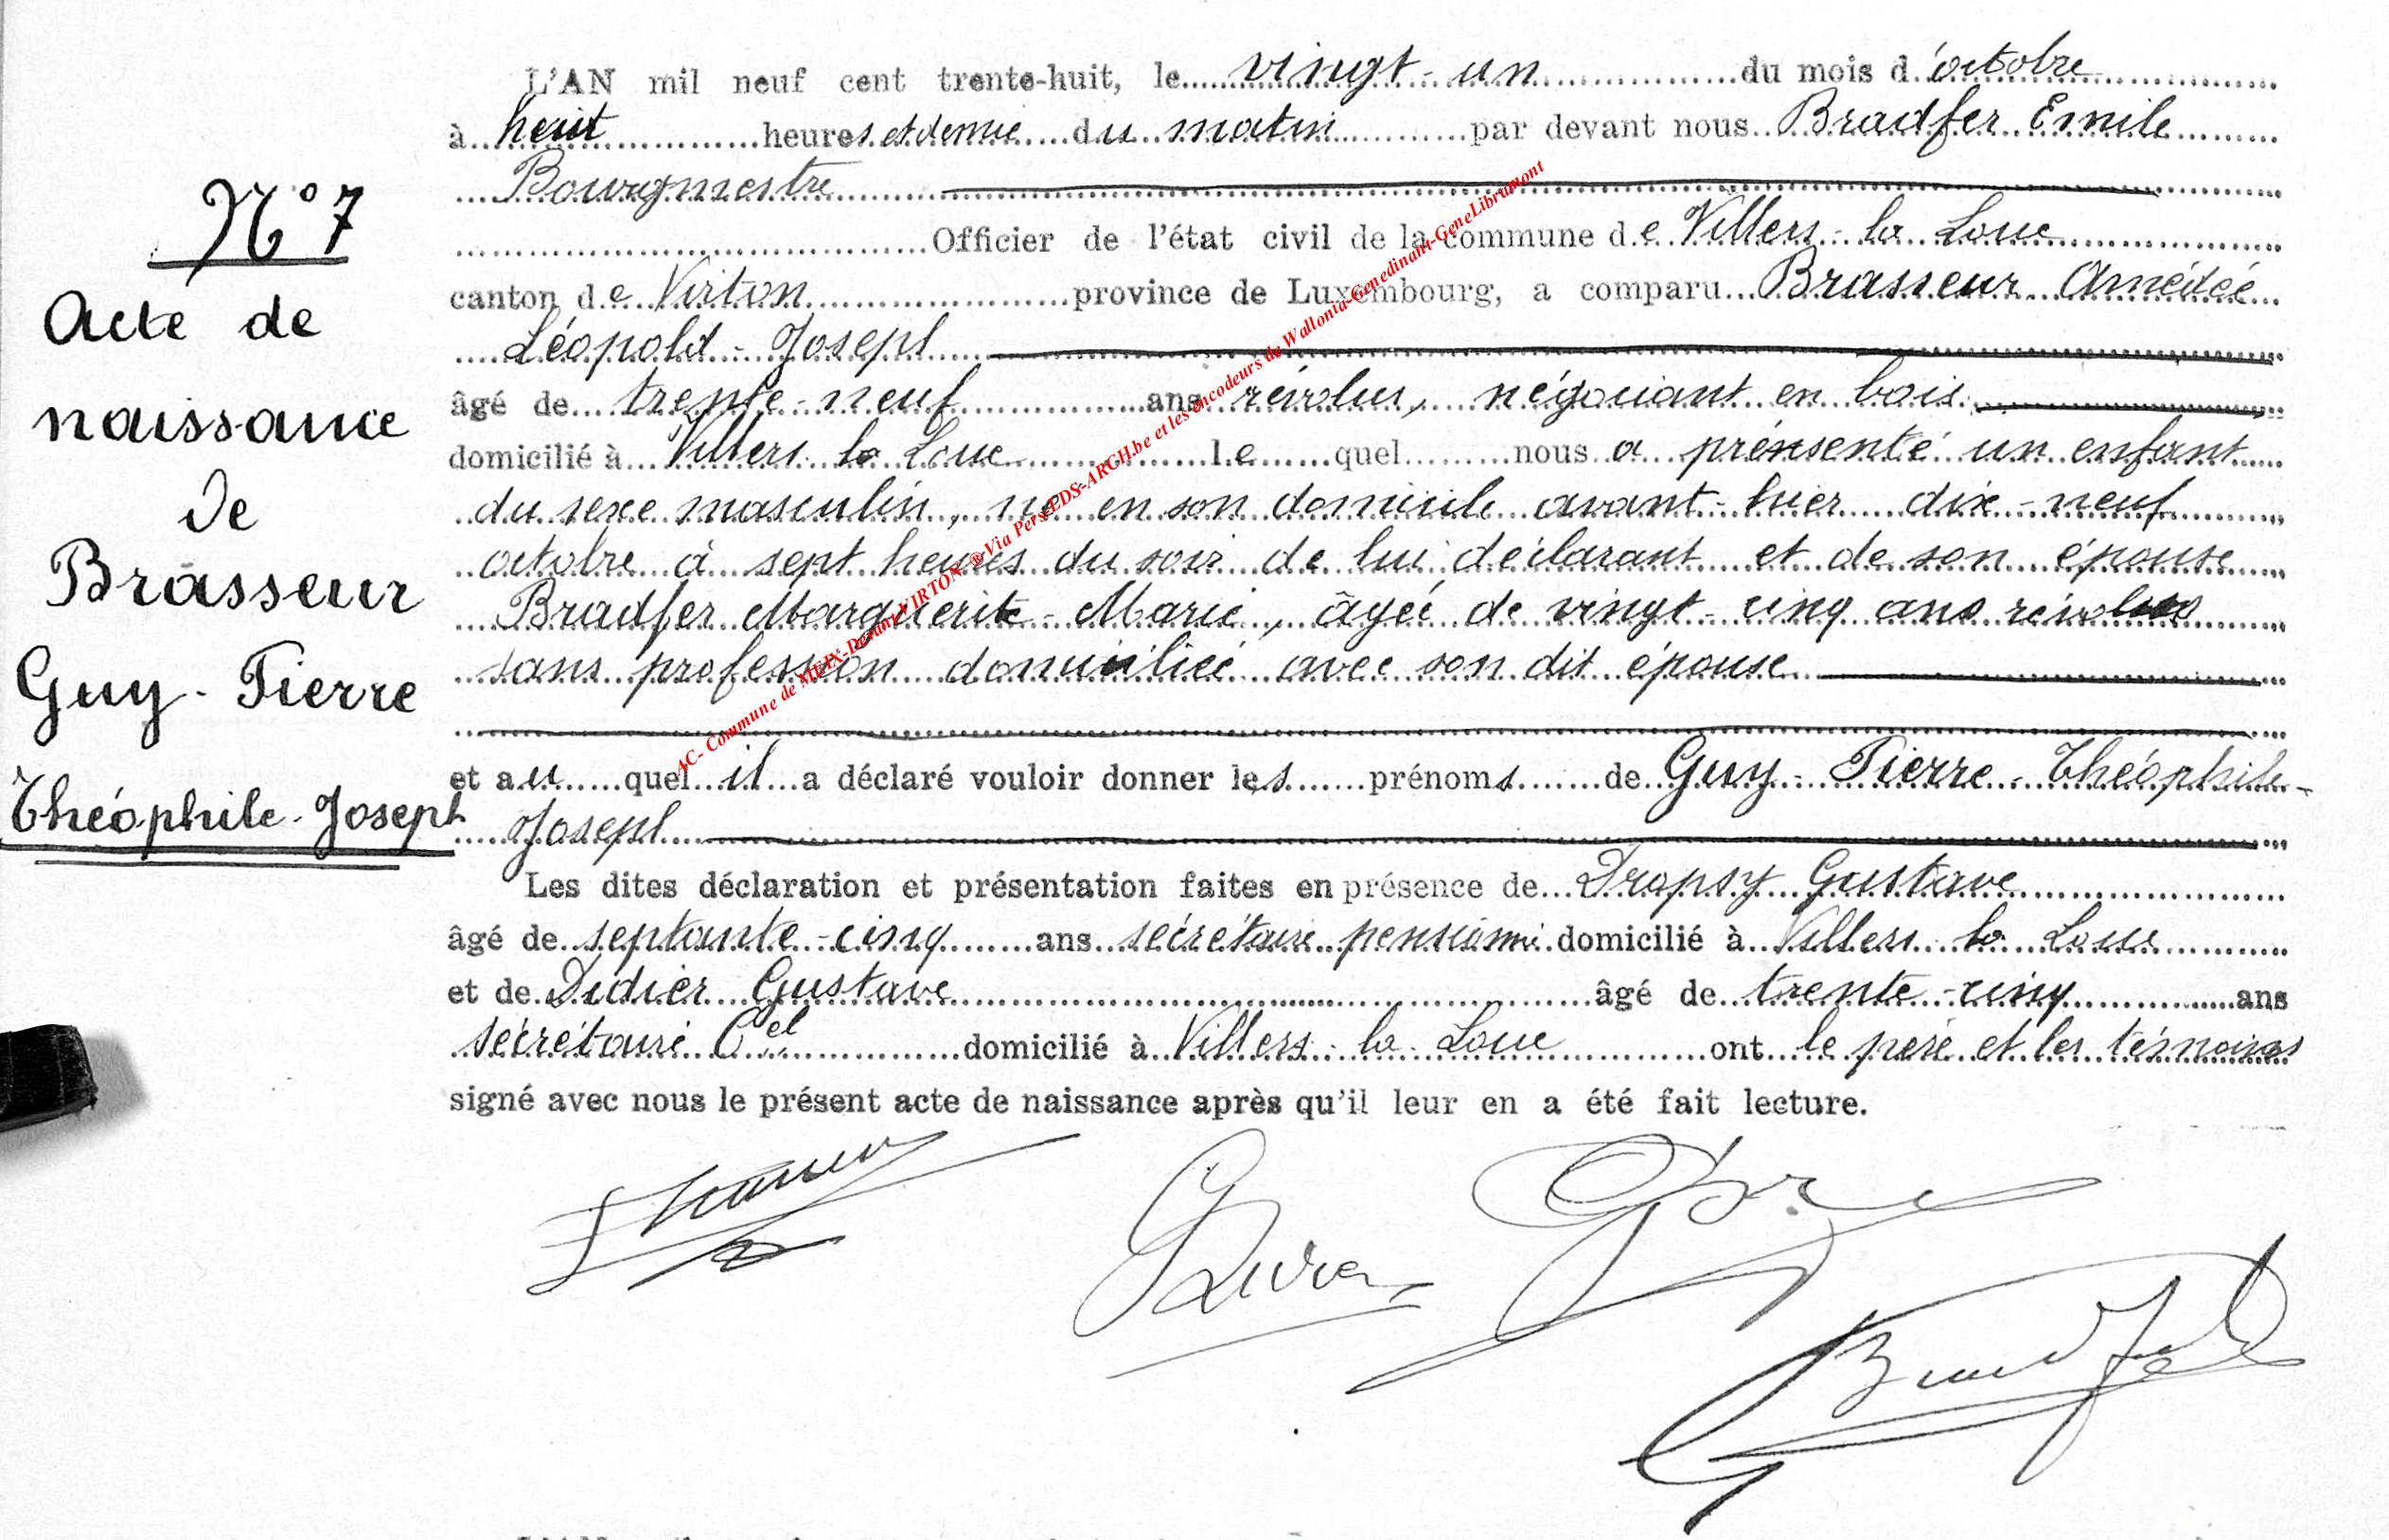 N° 7
Acte de
naissance
de
Brasseur
Guy - Pierre
Théophile - Joseph
L'AN mil neuf cent trente-huit, le vingt - un du mois d'octobre
à huit heures et demie du matin par devant nous Bradfer Emile
Bourgmestre
Officier de l'état civil de la commune de Villers - la Loue
canton de Virton province de Luxembourg, a comparu Brasseur Amédée
Léopold - Joseph
âgé de trente - neuf ans révolus, négociant en bois
domicilié à Villers la Loue le quel nous a présenté un enfant
du sexe masculin, né en son domicile avant - hier dix - neuf
octobre à sept heures du soir de lui déclarant et de son épouse
Bradfer Marguerite - Marie, âgée de vingt - cinq ans révolus
sans profession domiciliée avec son dit épouse
et au quel il a déclaré vouloir donner les prénoms de Guy - Pierre - Théophile -
Joseph
Les dites déclaration et présentation faites en présence de Dropsy Gustave
âgé de septante - cinq ans secrétaire pensionné domicilié à Villers la Loue
et de Didier Gustave âgé de trente - cinq ans
secrétaire Cel domicilié à Villers - la - Loue ont le père et les témoins
signé avec nous le présent acte de naissance après qu'il leur en a été fait lecture.
Bradfer
AC- Commune de MEIX-Devant-VIRTON ® Via Pers-EDS-ARCH.be et les encodeurs de Wallonia-Genedinant-GeneLibramont